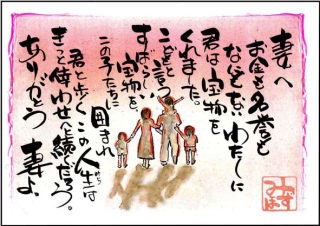 妻へ
お金も名誉も
なんにもないわたしに
君は宝物を
くれました。
こどもと言う
すばらしい
宝物を、
この子たちに囲まれ
君と歩くこの人生は
きっと倖わせへ続くだろう。
ありがとう 妻よ、